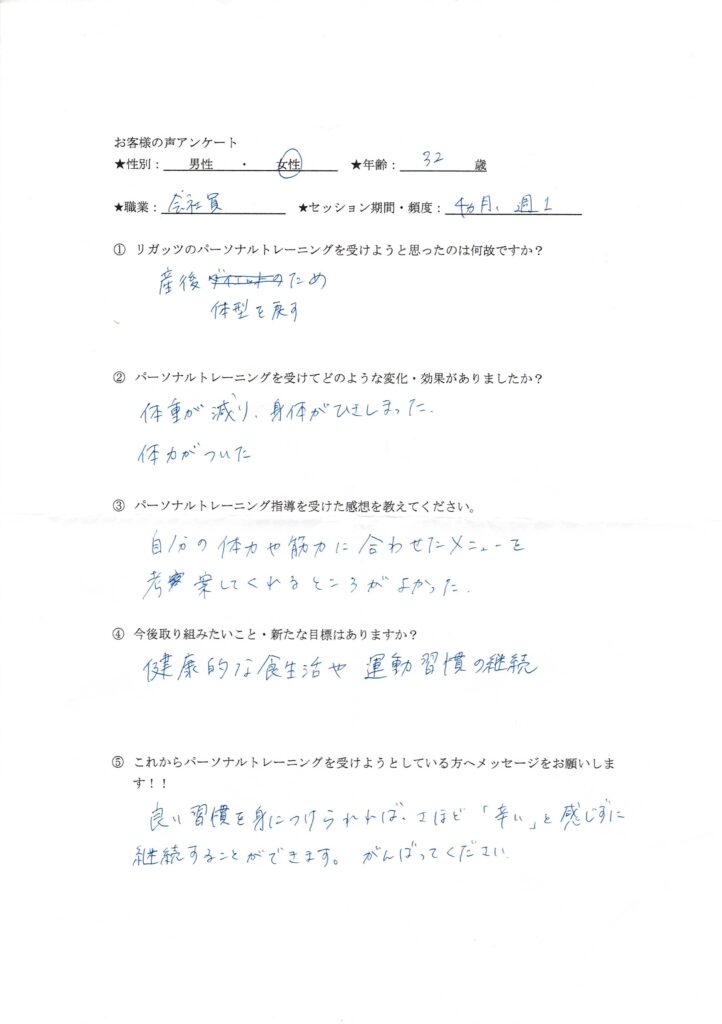 お客様の声アンケート
★性別： 男性 ・ 女性 ★年齢： 32 歳
★職業： 会社員 ★セッション期間・頻度： 4ヵ月、週1
① リガッツのパーソナルトレーニングを受けようと思ったのは何故ですか？
産後ダイエットのため
体型を戻す
② パーソナルトレーニングを受けてどのような変化・効果がありましたか？
体重が減り、身体がひきしまった。
体力がついた
③ パーソナルトレーニング指導を受けた感想を教えてください。
自分の体力や筋力に合わせたメニューを
考案してくれるところがよかった。
④ 今後取り組みたいこと・新たな目標はありますか？
健康的な食生活や運動習慣の継続
⑤ これからパーソナルトレーニングを受けようとしている方へメッセージをお願いしま
す！！
良い習慣を身につけられれば、さほど「辛い」と感じずに
継続することができます。がんばってください